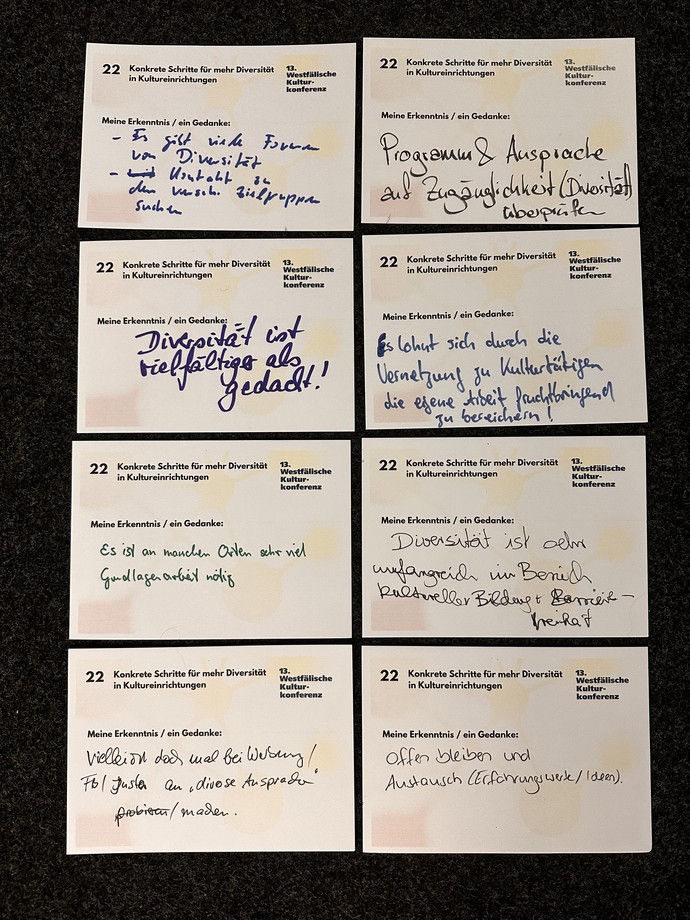 22 Konkrete Schritte für mehr Diversität
in Kultureinrichtungen
13.
Westfälische
Kultur-
konferenz
Meine Erkenntnis / ein Gedanke:
- Es gibt viele Formen
von Diversität
- Kontakt zu
den versch. Zielgruppen
suchen
22 Konkrete Schritte für mehr Diversität
in Kultureinrichtungen
13.
Westfälische
Kultur-
konferenz
Meine Erkenntnis / ein Gedanke:
Programm & Ansprache
auf Zugänglichkeit (Diversität)
überprüfen
22 Konkrete Schritte für mehr Diversität
in Kultureinrichtungen
13.
Westfälische
Kultur-
konferenz
Meine Erkenntnis / ein Gedanke:
Diversität ist
vielfältiger als
gedacht!
22 Konkrete Schritte für mehr Diversität
in Kultureinrichtungen
13.
Westfälische
Kultur-
konferenz
Meine Erkenntnis / ein Gedanke:
Es lohnt sich durch die
Vernetzung zu Kulturtätigen
die eigene Arbeit fruchtbringend
zu bereichern!
22 Konkrete Schritte für mehr Diversität
in Kultureinrichtungen
13.
Westfälische
Kultur-
konferenz
Meine Erkenntnis / ein Gedanke:
Es ist an manchen Orten sehr viel
Grundlagenarbeit nötig
22 Konkrete Schritte für mehr Diversität
in Kultureinrichtungen
13.
Westfälische
Kultur-
konferenz
Meine Erkenntnis / ein Gedanke:
Diversität ist sehr
umfangreich im Bereich
kultureller Bildung + Barriere-
freiheit
22 Konkrete Schritte für mehr Diversität
in Kultureinrichtungen
13.
Westfälische
Kultur-
konferenz
Meine Erkenntnis / ein Gedanke:
Vielleicht doch mal bei Werbung /
Fb / Insta an „diverse Ansprache"
probieren / machen.
22 Konkrete Schritte für mehr Diversität
in Kultureinrichtungen
13.
Westfälische
Kultur-
konferenz
Meine Erkenntnis / ein Gedanke:
Offen bleiben und
Austausch (Erfahrungswerte / Ideen).